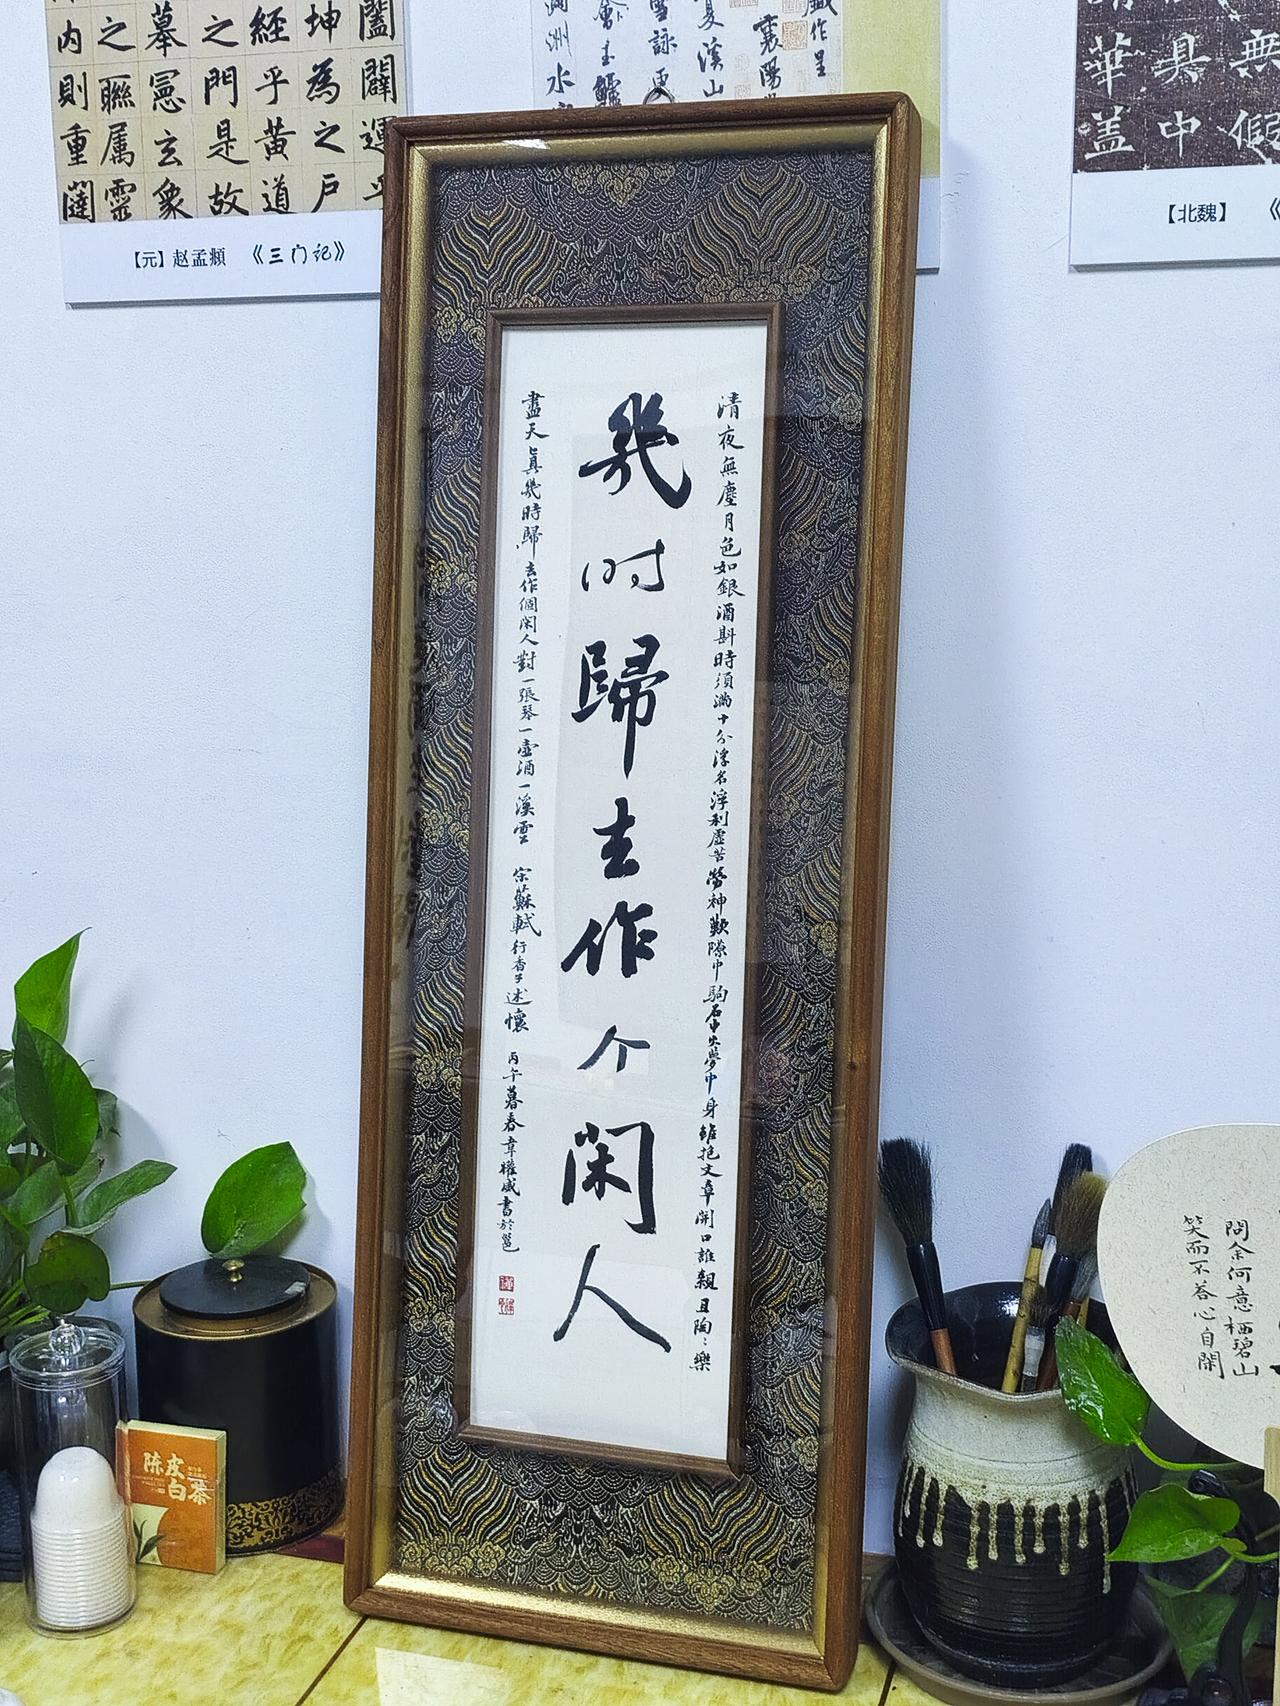 闔闢運乎
坤為之戶
經乎黃道
之門是故
摹憲玄象
之聯属靈
内則重闥
【元】赵孟頫 《三门记》
襄陽
夏溪山
雪詠更
無假
具中
華蓋
【北魏】 《
清夜無塵月色如銀酒斟時須滿十分浮名浮利虛苦勞神歎隙中駒石中火夢中身雖抱文章開口誰親且陶〻樂
幾时歸去作个閑人
盡天真幾時歸去作個閑人對一張琴一壺酒一溪雲 宋蘇軾行香子述懷 丙午暮春韋權威書於邕
陈皮
白茶
問余何意栖碧山
笑而不答心自閑